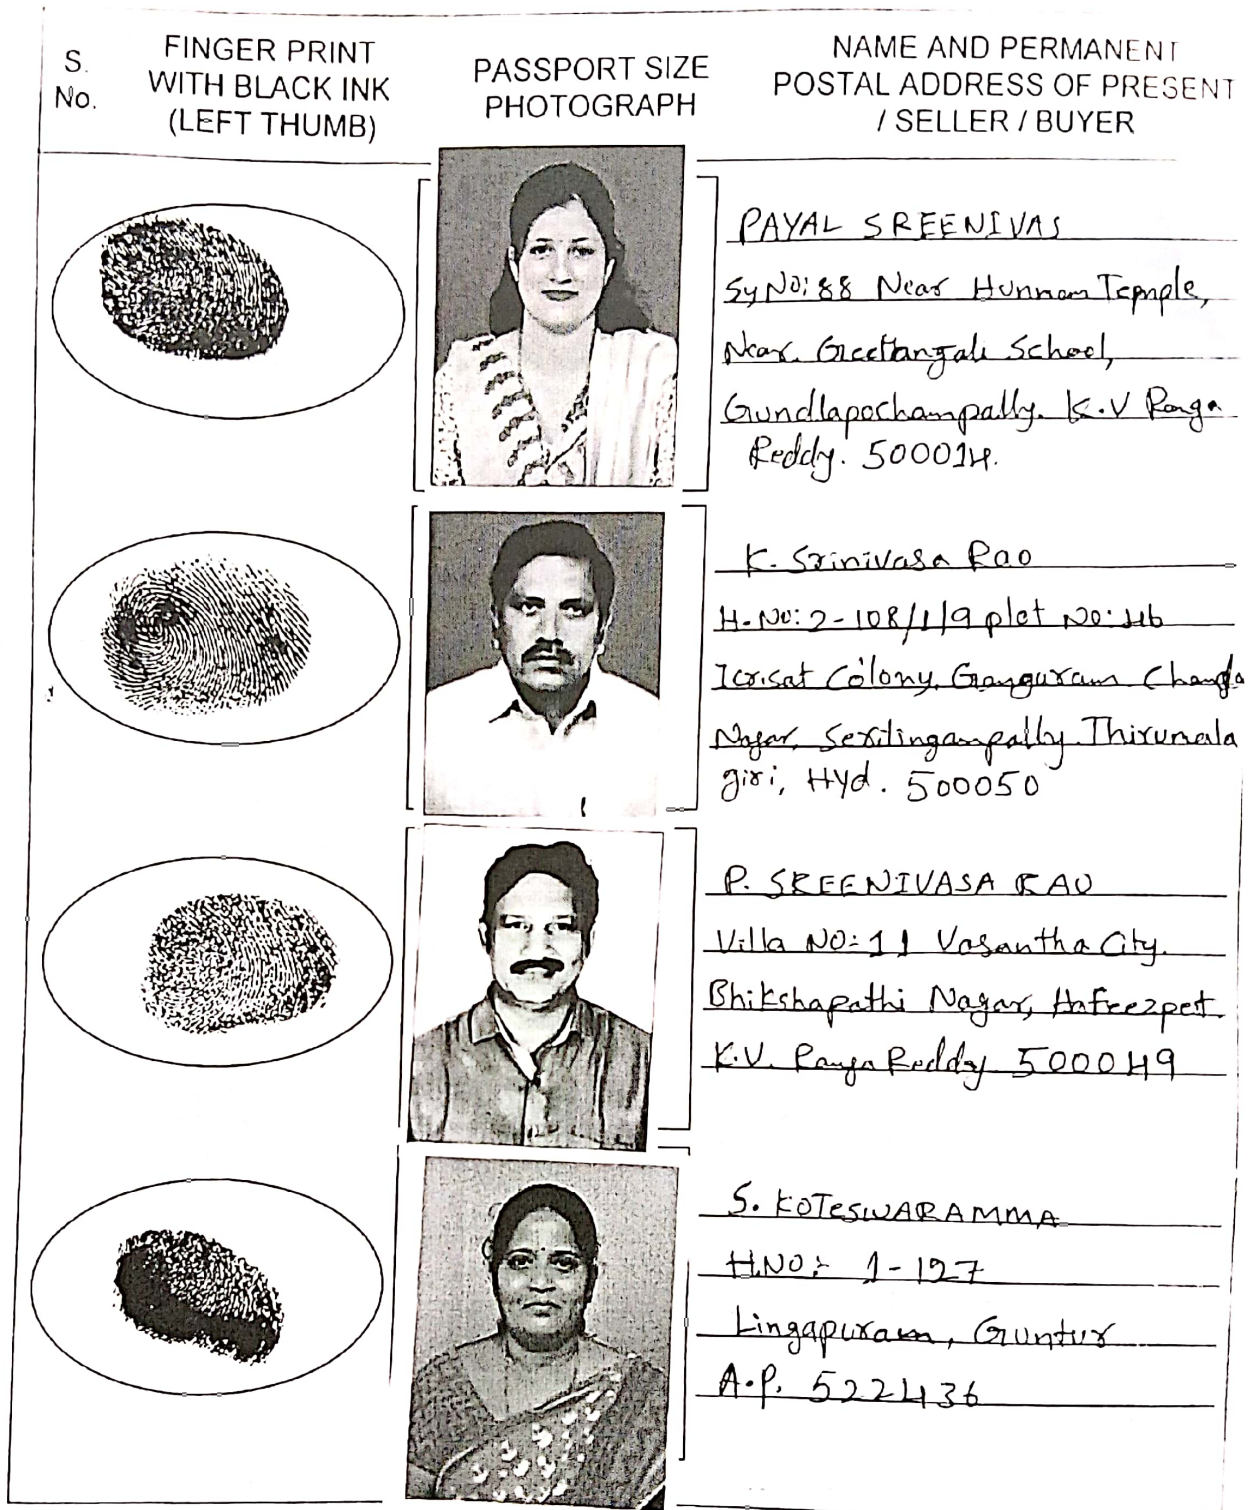 S.
No.
FINGER PRINT
WITH BLACK INK
(LEFT THUMB)
PASSPORT SIZE
PHOTOGRAPH
NAME AND PERMANENT
POSTAL ADDRESS OF PRESENT
/ SELLER / BUYER
PAYAL SREENIVAS
Sy No: 88 Near Hunman Temple,
Near. Geethanjali School,
Gundlapochampally. K.V Ranga
Reddy. 500014.
K. Srinivasa Rao
H.No: 2-108/1/9 plot No: 46
Icrisat Colony, Gangaram Chanda
Nagar, Serilingampally Thirumala
giri, Hyd. 500050
P. SREENIVASA RAO
Villa NO: 11 Vasantha City.
Bhikshapathi Nagar, Hafeezpet.
K.V. Ranga Reddy 500049
S. KOTESWARAMMA
H.NO:- 1-127
Lingapuram, Guntur
A.P. 522436